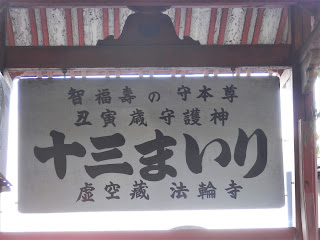 智福壽の守本尊
丑寅歳守護神
十三まいり
虚空蔵 法輪寺